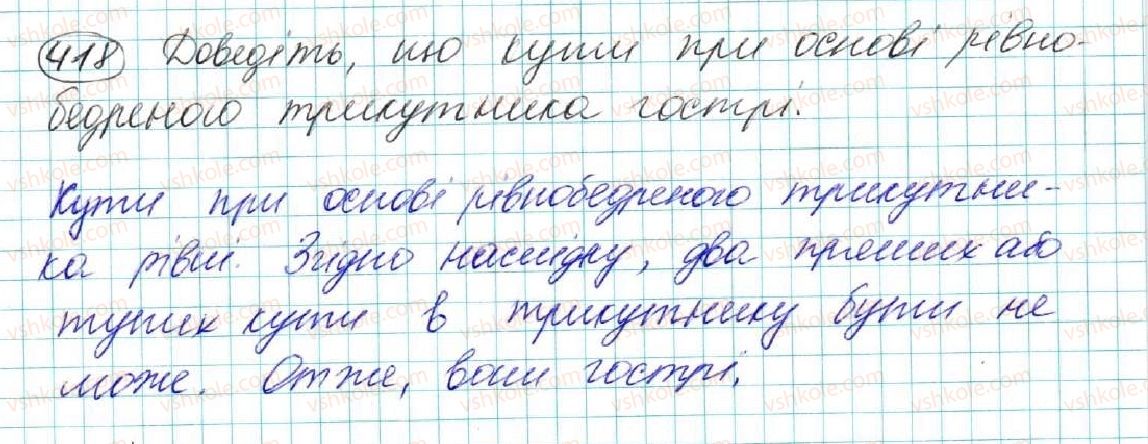 418 Доведіть, що кути при основі рівно-
бедреного трикутника гострі.
Кути при основі рівнобедреного трикутни-
ка рівні. Згідно наслідку, два прямих або
тупих кути в трикутнику бути не
може. Отже, вони гострі.